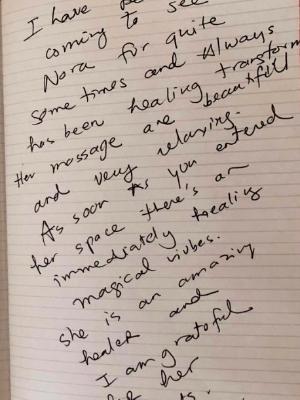 I have
coming to see
Nora for quite
some times and Always
has been healing transform
Her massage are beautifull
and very relaxing.
As soon as you entered
her space there's a
immediately healing
magical vibes.
She is an amazing
healer and
I am gratoful
for her